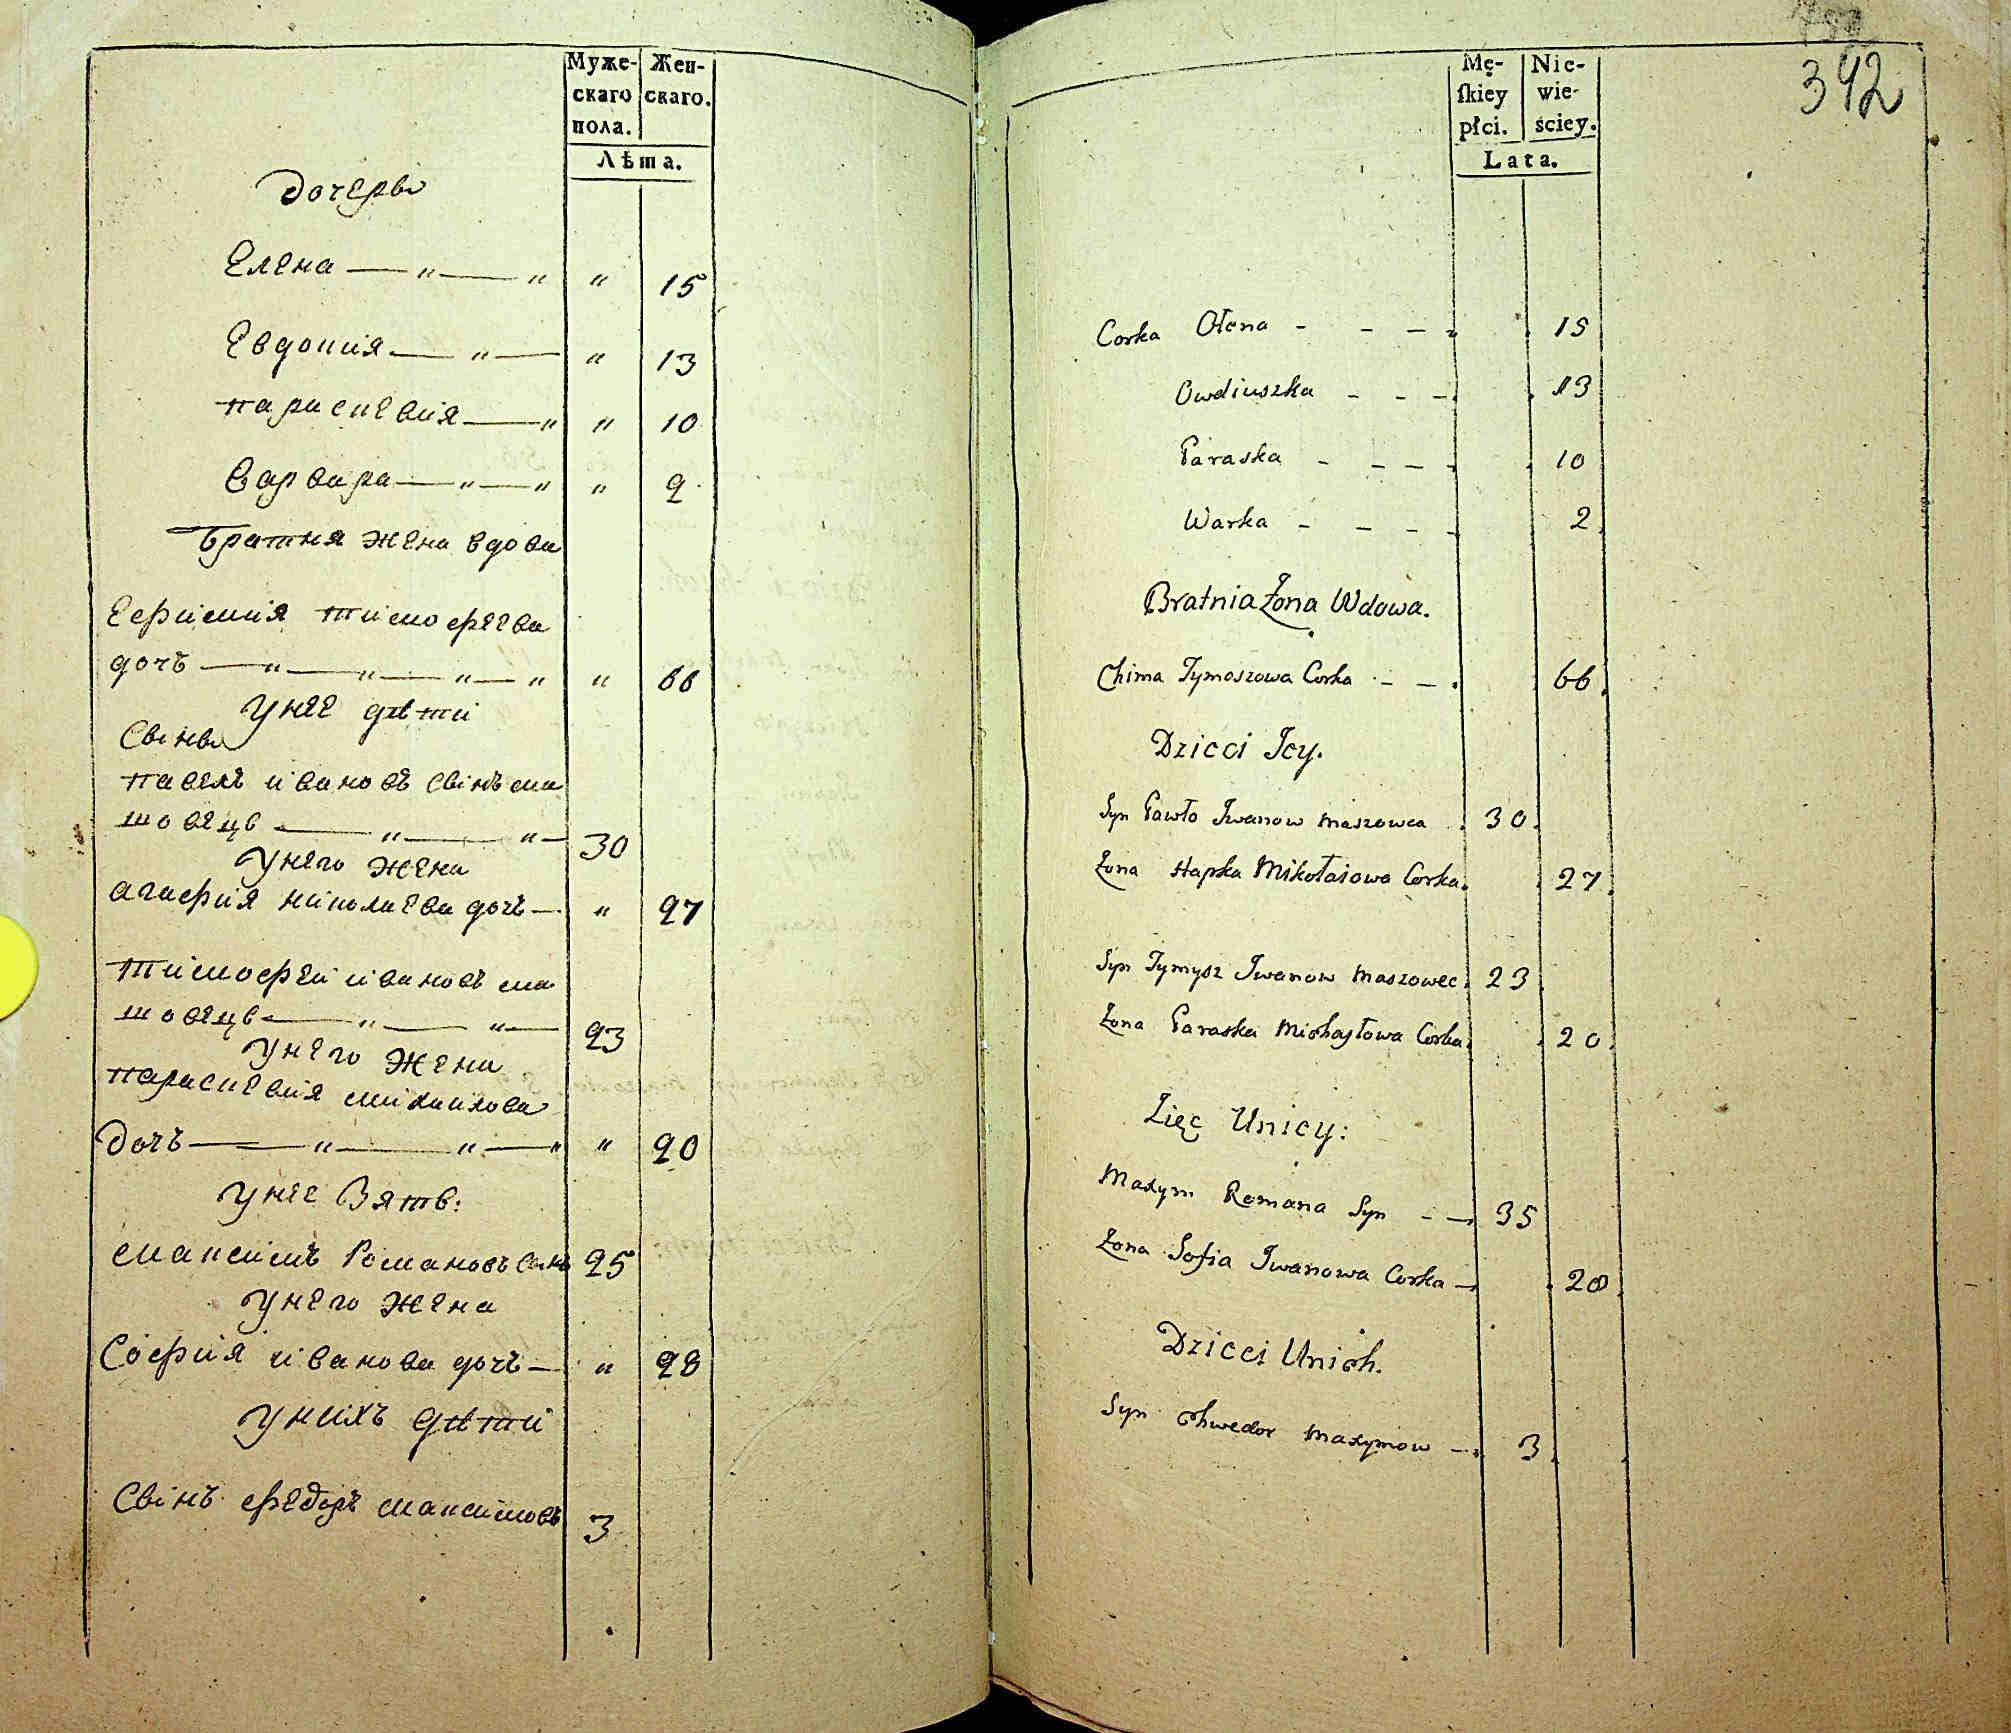 Муже-
скаго
пола.
Жен-
скаго.
Лѣта.
Дочери
Елена — " — " " 15
Евдокия — " — " 13
параскевия — " " 10
Варвара — " — " " 2
Братня жена вдова
Ефимия тимофеева
дочь — " — " — " — " " 66
У нее дѣти
Сыны
павелъ ивановъ сынъ ма
шовецъ — " — " — 30
У него жена
агафия николаева дочь — " 27
тимофей ивановъ ма
шовецъ — " — " — 23
У него жена
параскевия михаилова
Дочь — " — " — " " 20
У нее Зять:
максимъ Романовъ сынъ 25
У него жена
София иванова дочь — " 28
У нихъ дѣти
Сынъ федоръ максимовъ 3
392
Mę-
ſkiey
płci.
Nie-
wie-
ściey.
Lata.
Corka Ołena - - - 15
Owdiuszka - - - 13
Paraska - - - 10
Warka - - - 2
Bratnia Żona Wdowa.
Chima Tymoszowa Corka - - 66
Dzieci Jey.
Syn Pawło Iwanow Maszowca 30
Żona Hapka Mikołaiowa Corka 27
Syn Tymysz Iwanow Maszowec 23
Żona Paraska Michayłowa Corka 20
Zięc Unicy:
Maxym Romana Syn - - 35
Żona Sofia Iwanowa Corka - 28
Dzieci Unich.
Syn Chwedor Maxymow - 3